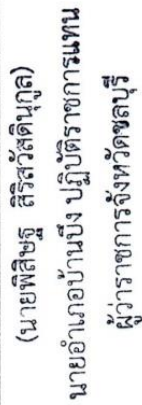 (นายพิสิษฐ สิริสวัสดินุกูล)
นายอำเภอบ้านบึง ปฏิบัติราชการแทน
ผู้ว่าราชการจังหวัดชลบุรี